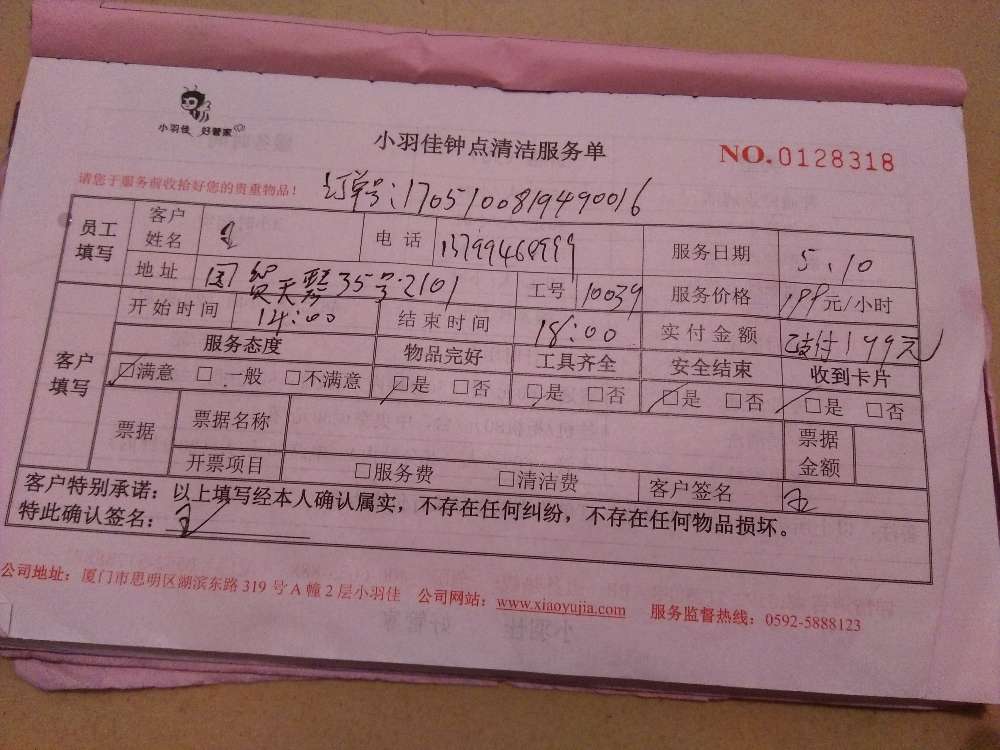 小羽佳 好管家
小羽佳钟点清洁服务单
NO.0128318
请您于服务前收拾好您的贵重物品！
订单号：1705100819490016
员工填写 客户姓名 电话 13799468999 服务日期 5.10
地址 国贸天琴35号2101 工号 10039 服务价格 199元/小时
客户填写 开始时间 14:00 结束时间 18:00 实付金额 已支付199元
服务态度 物品完好 工具齐全 安全结束 收到卡片
☑满意 □一般 □不满意 ☑是 □否 ☑是 □否 ☑是 □否 ☑是 □否
票据 票据名称 票据金额
开票项目 □服务费 □清洁费 客户签名
客户特别承诺：以上填写经本人确认属实，不存在任何纠纷，不存在任何物品损坏。
特此确认签名：
公司地址：厦门市思明区湖滨东路319号A幢2层小羽佳 公司网站：www.xiaoyujia.com 服务监督热线：0592-5888123